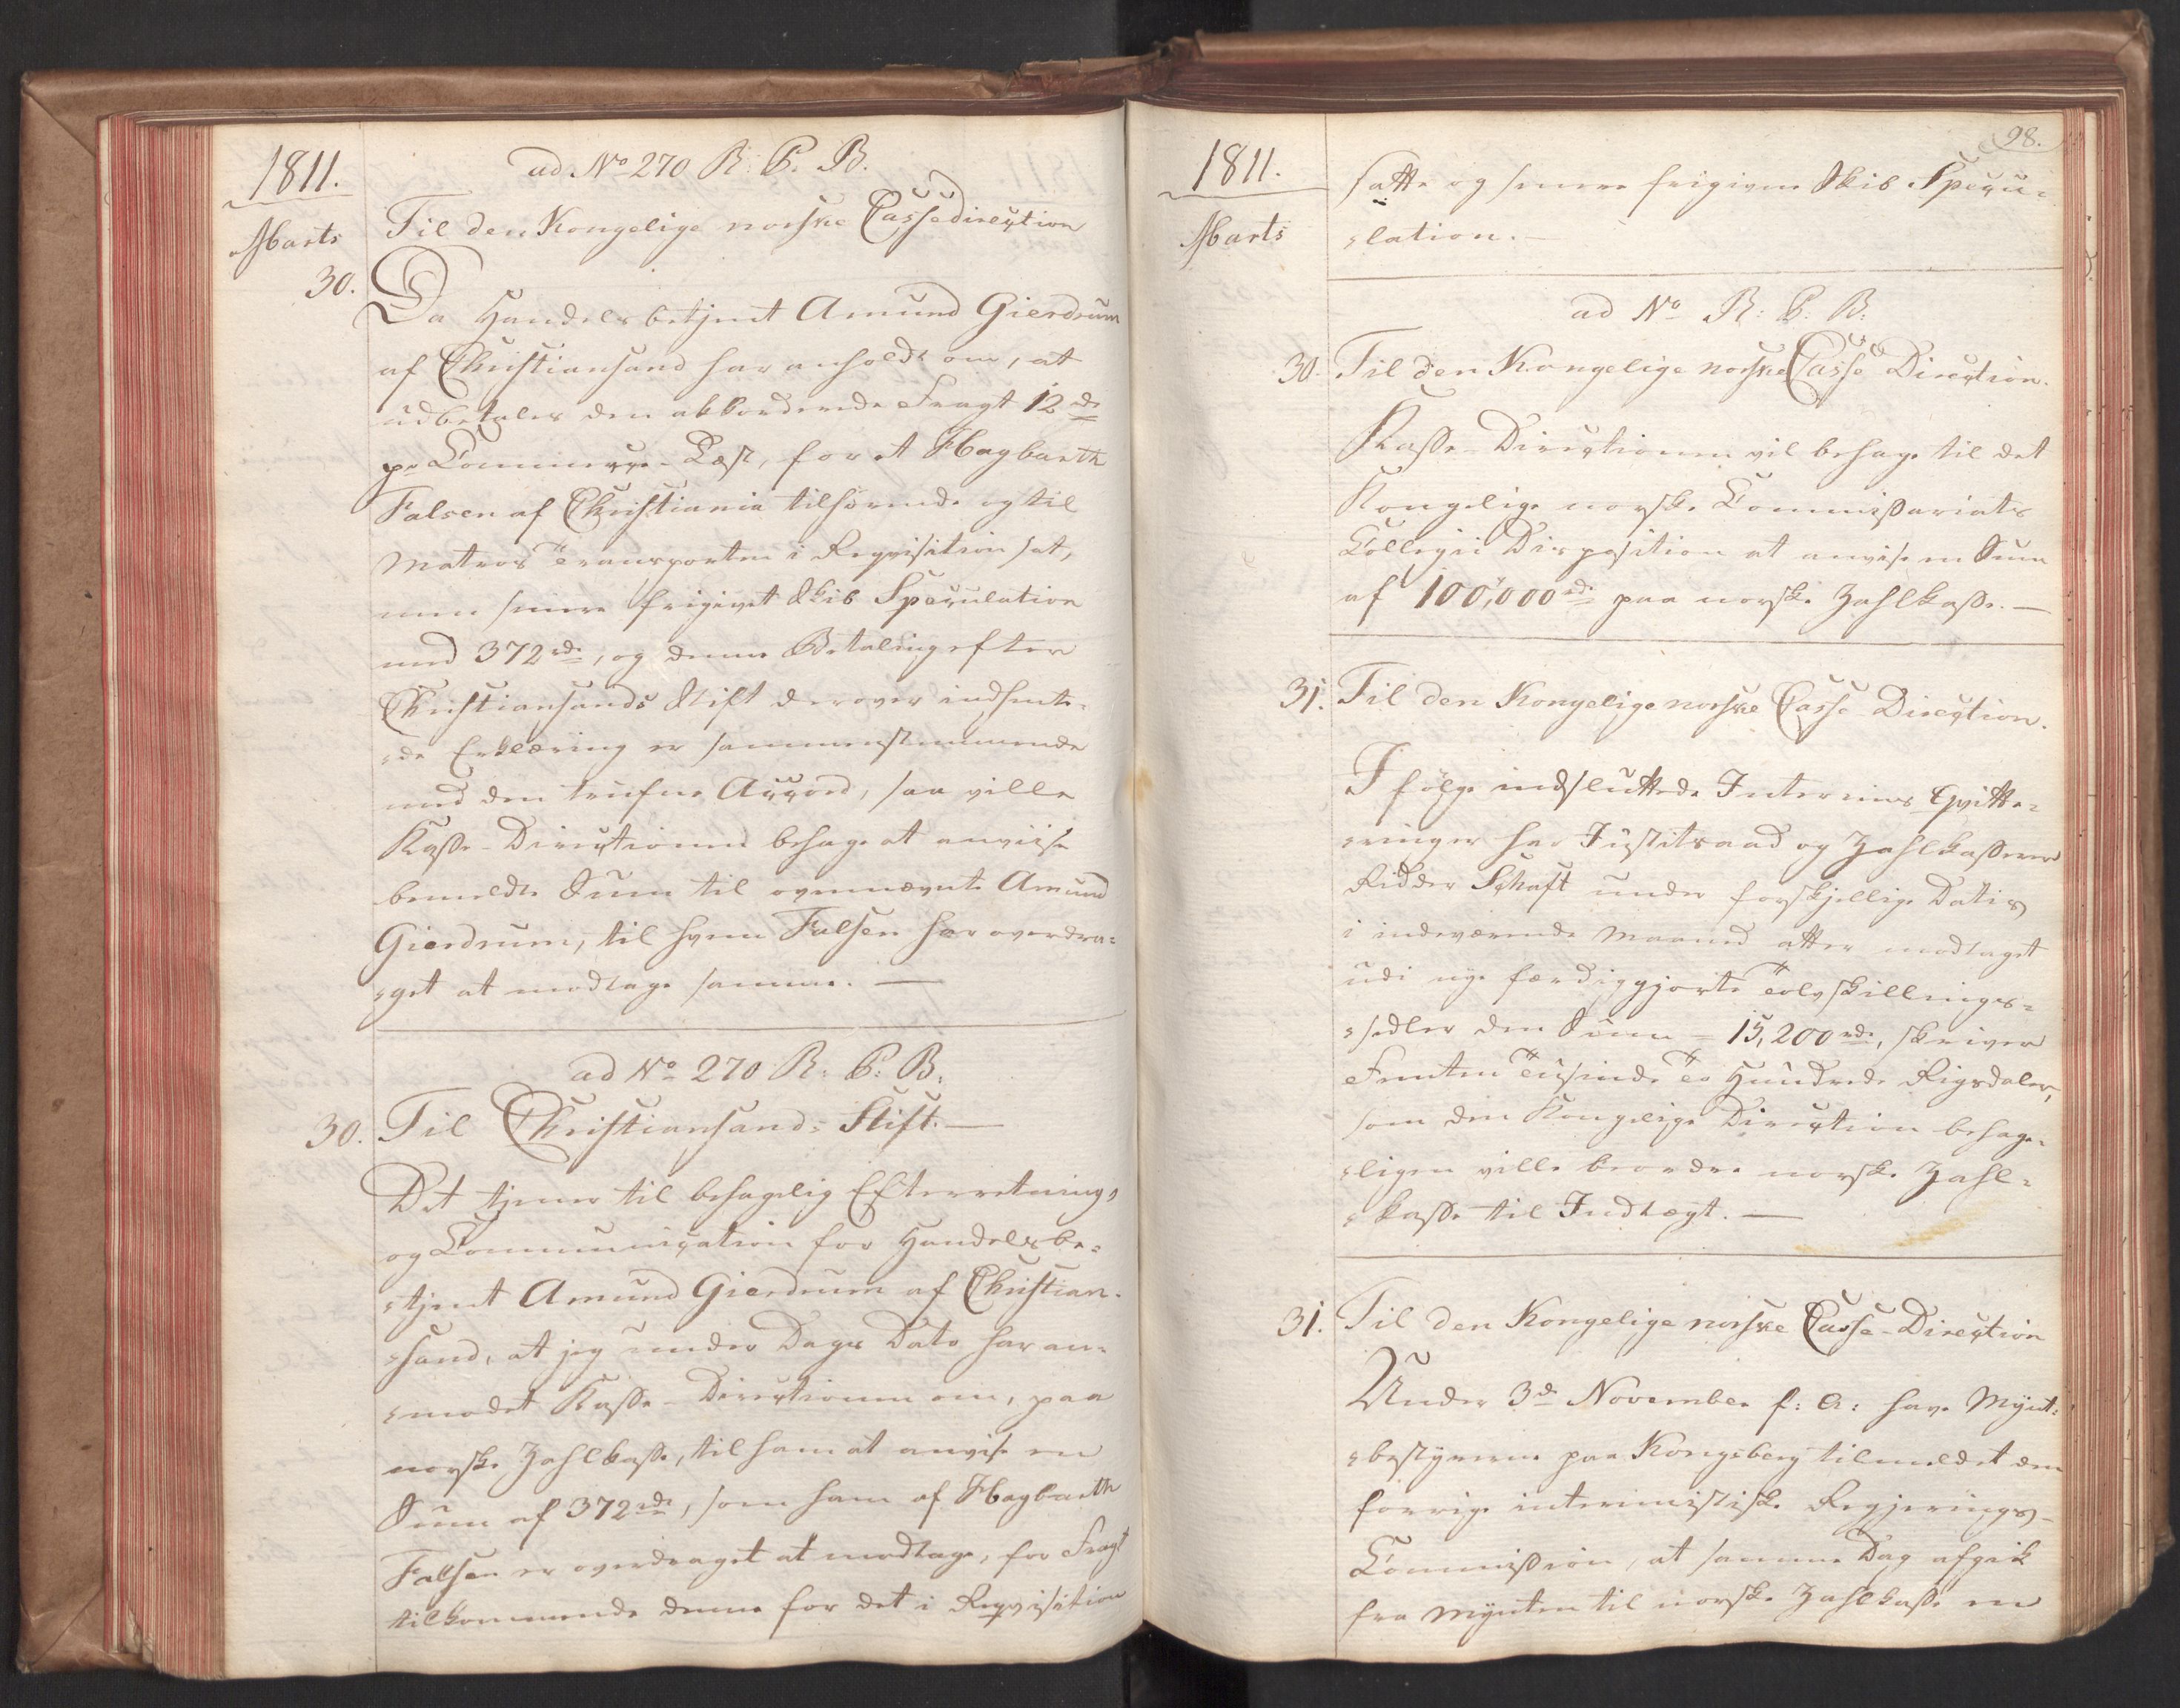 1811.
Marts
ad No 270 R: C. B.
30.
Til den Kongelige norske Cassedirection
Da Handelsbetjent Amund Gierdrum
af Christiansand har anholdt om, at
udbetales den akkorderede Fragt 12 rd
pr Commerce-Læst, for et Hagbarth
Falsen af Christiania tilhørende og til
Matros Transporten i Reqvisition sat,
men senere frigivet Skib Speculation
med 372 rd, og denne Betaling efter
Christiansands Stift derover indhente-
-de Erklæring er sammenstemmende
med den trufne Accord, saa ville
Kasse-Directionen behage at anviise
bemeldte Sum til ovennævnte Amund
Gierdrum, til hvem Falsen har overdra-
-get at modtage samme. —
ad No 270 R: C: B.
30.
Til Christiansands Stift. —
Det tjener til behagelig Efterretning,
og Communication for Handelsbe-
-tjent Amund Gierdrum af Christian-
-sand, at jeg under Dags Dato har an-
-modet Kasse-Directionen om, paa
norske Zahlkasse, til ham at anvise en
Sum af 372 rd, som ham af Hagbarth
Falsen er overdraget at modtage, for Fragt
tilkommende denne for det i Reqvisition
98.
1811.
Marts
satte og senere frigivne Skib Specu-
-lation. —
ad No R: C: B:
30.
Til den Kongelige norske Casse Direction.
Kasse-Directionen vil behage til det
Kongelige norske Commissariats
Collegii Disposition at anvise en Sum
af 100,000 rd paa norske Zahlkasse. —
31.
Til den Kongelige norske Casse-Direction.
Ifølge indsluttede Interims Qvitte-
-ringer har Justitsraad og Zahlkasserer
Ridder Schaft under forskjellige Datis
i indeværende Maaned atter modtaget
udi nye færdiggjorte Tolvskillings-
-sedler den Sum - 15,200 rd, skriver
Femten Tusinde To Hundrede Rigsdaler,
som den Kongelige Direction behage-
-ligen ville beordre norske Zahl-
-kasse til Indtægt. —
31.
Til den Kongelige norske Casse-Direction
Under 3de November f: A: have Mynt-
-bestyrerne paa Kongsberg tilmeldet den
forrige interimistiske Regjerings-
Commission, at samme Dag afgik
fra Mynten til norske Zahlkasse en